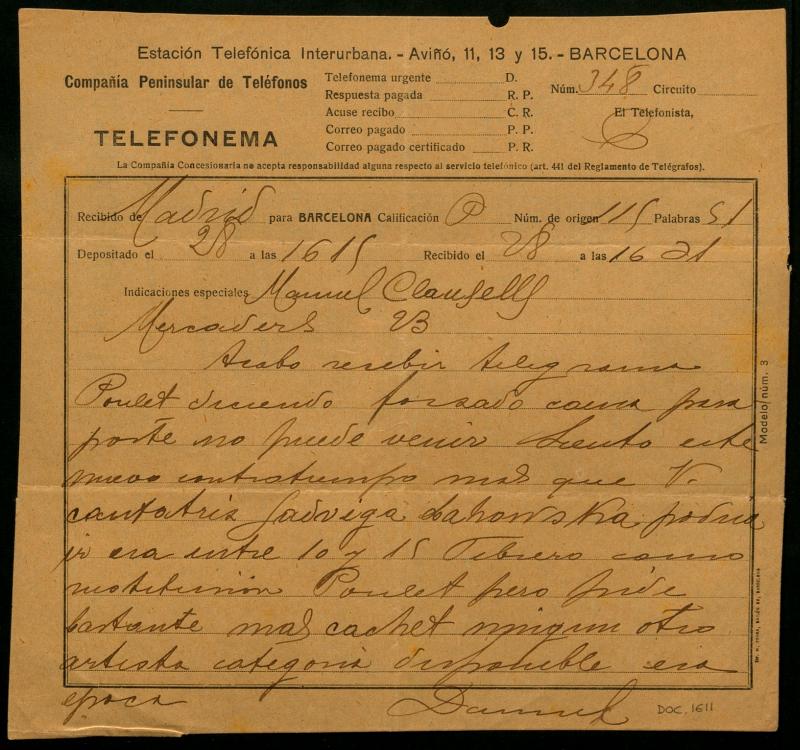 Estación Telefónica Interurbana. - Aviñó, 11, 13 y 15. - BARCELONA
Compañía Peninsular de Teléfonos
TELEFONEMA
Telefonema urgente D.
Respuesta pagada R. P.
Acuse recibo C. R.
Correo pagado P. P.
Correo pagado certificado P. R.
Núm. 348 Circuito
El Telefonista,
La Compañía Concesionaria no acepta responsabilidad alguna respecto al servicio telefónico (art. 441 del Reglamento de Telégrafos).
Recibido de Madrid para BARCELONA Calificación P Núm. de origen 115 Palabras 51
Depositado el 28 a las 16 15 Recibido el 28 a las 16 21
Indicaciones especiales Manuel Clausells
Mercaders 23
Acabo recibir telegrama
Poulet diciendo forzado cama para
porte no puede venir Siento este
nuevo contratiempo mas que V.
cantatriz Jadviga Lahowska podria
ir era entre 10 y 15 Febrero como
restitución Poulet pero pide
bastante mas cachet ningun otro
artista categoria disponible esa
epoca Daniel
Modelo núm. 3
DOC. 1611